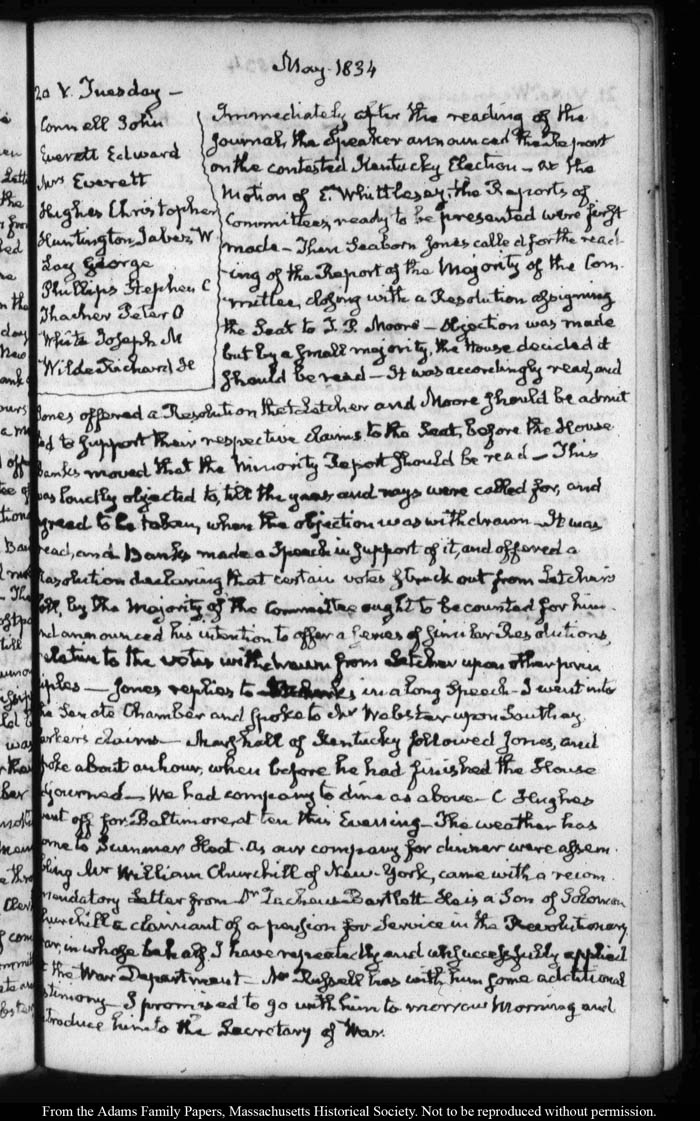 May. 1834
20 V. Tuesday —
Connell John
Everett Edward
Mrs Everett
Hughes Christopher
Huntington Jabez W
Lay George
Phillips Stephen C
Thacher Peter O
White Joseph M
Wilde Richard H
Immediately after the reading of the
Journal, the Speaker announced the Report
on the contested Kentucky Election — at the
Motion of E. Whittlesey, the Reports of
Committees, ready to be presented were first
made — Then Seaborn Jones called for the read-
ing of the Report of the Majority of the Com-
mittee, closing with a Resolution assigning
the Seat to T. P. Moore — Objection was made
but by a small majority, the House decided it
should be read — It was accordingly read, and
Jones offered a Resolution that Letcher and Moore should be admit
ted to support their respective claims to the Seat, before the House
Banks moved that the Minority Report should be read — This
was loudly objected to, till the yeas and nays were called for, and
agreed to be taken, when the objection was withdrawn — It was
read, and Banks made a Speech in support of it, and offered a
Resolution declaring that certain votes struck out from Letcher's
poll, by the Majority of the Committee ought to be counted for him.
and announced his intention to offer a Series of similar Resolutions,
relative to the votes withdrawn from Letcher upon other prin
ciples — Jones replies to Banks in a long Speech — I went into
the Senate Chamber and spoke to Mr Webster upon Southey
Parker's claims — Marshall of Kentucky followed Jones, and
spoke about an hour, when before he had finished the House
adjourned — We had company to dine as above — C Hughes
went off for Baltimore, at ten this Evening — The weather has
come to Summer Heat. As our company for dinner were assem-
bling Mr William Churchill of New-York, came with a recom-
mendatory Letter from Dr Zacheus Bartlett — He is a Son of Solomon
Churchill a claimant of a pension for Service in the Revolutionary
War, in whose behalf I have repeatedly and unsuccessfully applied
at the War Department — Mr Russell has with him some additional
testimony — I promised to go with him to morrow Morning and
introduce him to the Secretary of War.
From the Adams Family Papers, Massachusetts Historical Society. Not to be reproduced without permission.